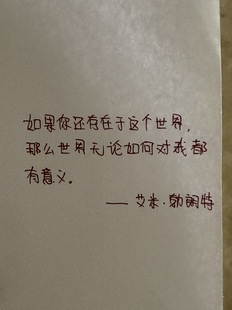 如果你还存在于这个世界，
那么世界无论如何对我都
有意义。
——艾米·勃朗特